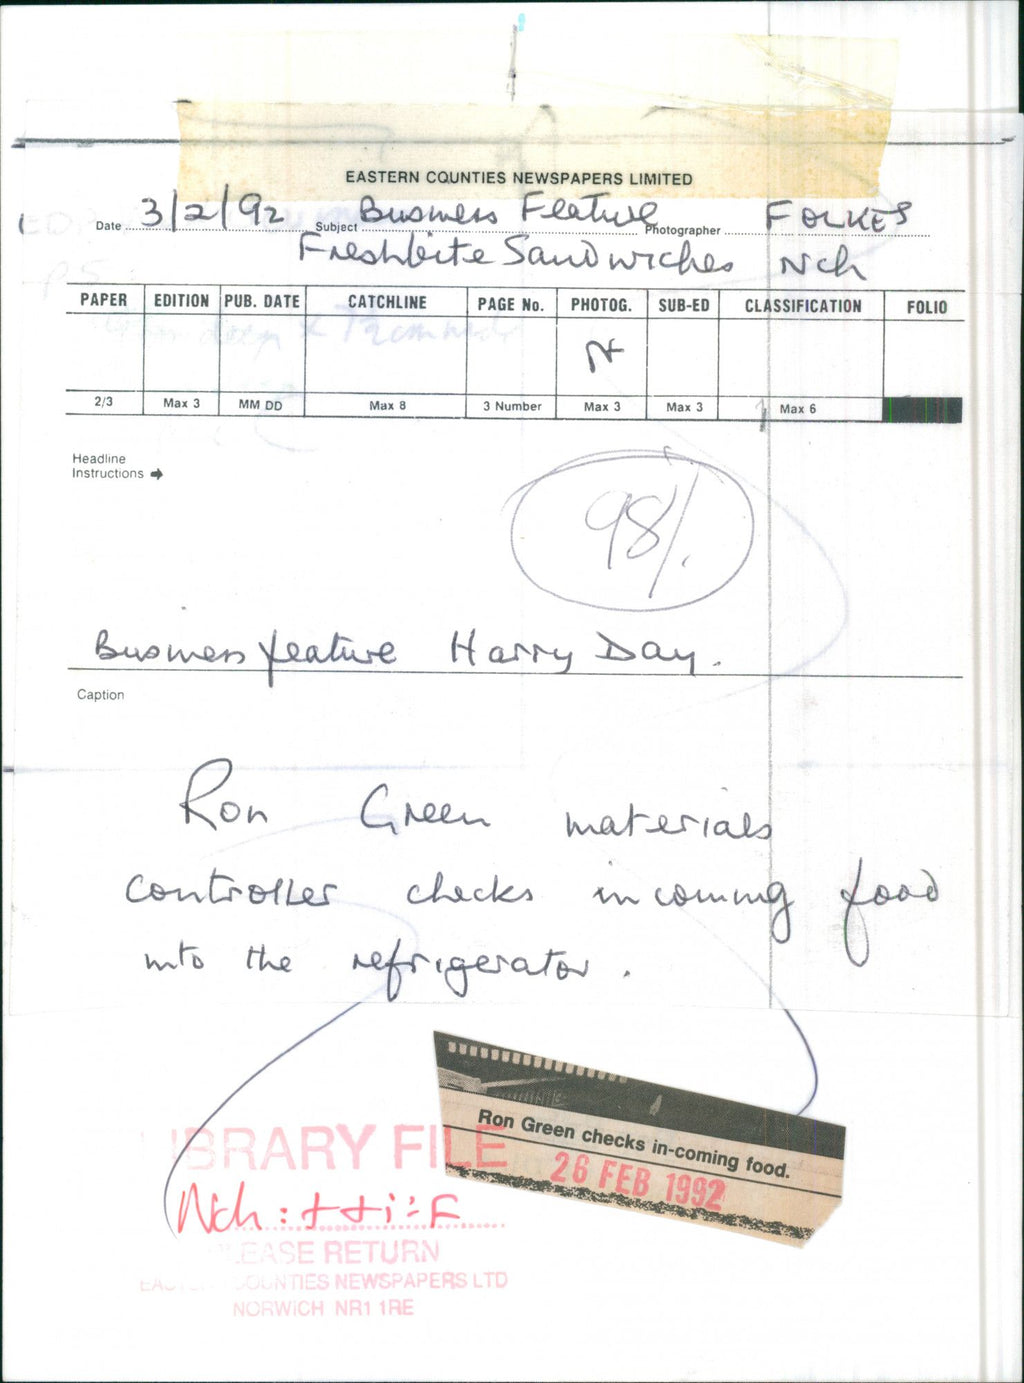 EASTERN COUNTIES NEWSPAPERS LIMITED
Date 3/2/92 Subject Business Feature Photographer FOLKES
Freshbite Sandwiches Nch
PAPER EDITION PUB. DATE CATCHLINE PAGE No. PHOTOG. SUB-ED CLASSIFICATION FOLIO
N
2/3 Max 3 MM DD Max 8 3 Number Max 3 Max 3 Max 6
Headline
Instructions
98%
Business feature Harry Day.
Caption
Ron Green materials
controller checks incoming food
into the refrigerator.
Ron Green checks in-coming food.
26 FEB 1992
LIBRARY FILE
Nch :
PLEASE RETURN
EASTERN COUNTIES NEWSPAPERS LTD
NORWICH NR1 1RE